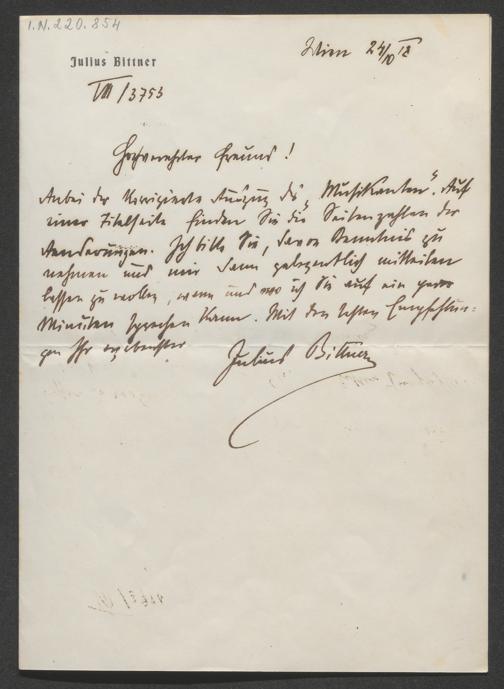 I.N. 220.854
Julius Bittner
Wien 24/X 12
VIII/3753
Hochverehrter Freund!
Anbei der korrigierte Auszug des „Musikanten“. Auf
einer Titelseite finden Sie die Seitenzahlen der
Aenderungen. Ich bitte Sie, davon Kenntnis zu
nehmen und mir dann gelegentlich mitteilen
lassen zu wollen, wann und wo ich Sie auf ein paar
Minuten sprechen kann. Mit den besten Empfehlun-
gen Ihr ergebenster
Julius Bittner